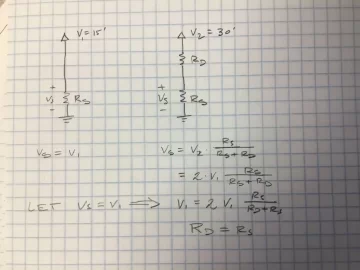 V₁ = 15'
V₂ = 30'
R_D
+
Vs
-
R_S
+
Vs
-
R_S
Vs = V₁
Vs = V₂ · R_S / (R_S + R_D)
= 2 · V₁ R_S / (R_S + R_D)
LET Vs = V₁ ⟹ V₁ = 2 V₁ R_S / (R_D + R_S)
R_D = R_S